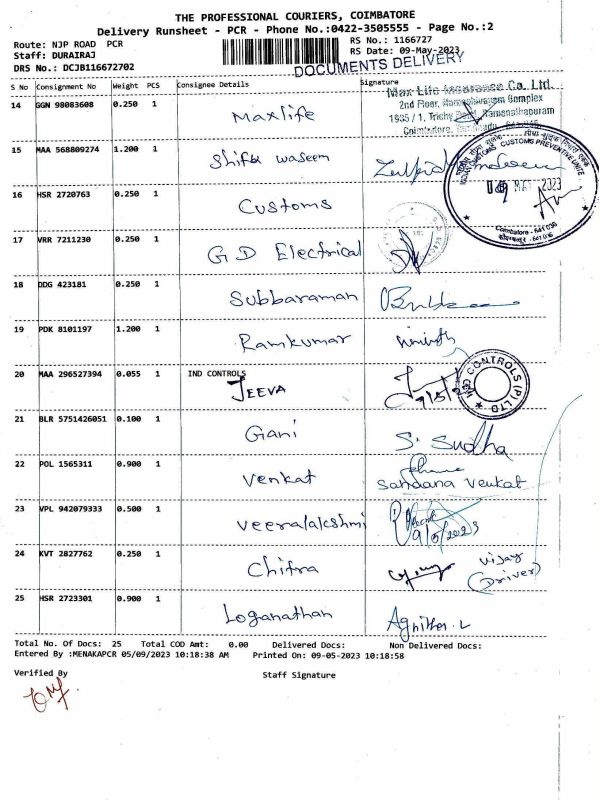 THE PROFESSIONAL COURIERS, COIMBATORE
Delivery Runsheet - PCR - Phone No.:0422-3505555 - Page No.:2
Route: NJP ROAD PCR RS No.: 1166727
Staff: DURAIRAJ RS Date: 09-May-2023
DRS No.: DCJB116672702 DOCUMENTS DELIVERY
S No Consignment No Weight PCS Consignee Details Signature
Max Life Insurance Co. Ltd.
14 GGN 98083608 0.250 1 Maxlife
2nd Floor, Complex
1935 / 1, Trichy Ramanathapuram
Coimbatore,
15 MAA 568809274 1.200 1 waseem
CUSTOMS PREVENTIVE UNIT
09 MAY 2023
Coimbatore - 641 018
16 HSR 2720763 0.250 1 Customs
17 VRR 7211230 0.250 1 G D Electrical
18 DDG 423181 0.250 1 Subbaraman
19 PDK 8101197 1.200 1 Ramkumar
20 MAA 296527394 0.055 1 IND CONTROLS
JEEVA
IND CONTROLS (P) LTD
21 BLR 5751426051 0.100 1 Gani S. Sudha
22 POL 1565311 0.900 1 Venkat
Sandana Venkat
23 VPL 942079333 0.500 1 Veeralalkshmi
9/5/2023
24 KVT 2827762 0.250 1 Chitra Vijay
(Driver)
25 HSR 2723301 0.900 1 Loganathan
Total No. Of Docs: 25 Total COD Amt: 0.00 Delivered Docs: Non Delivered Docs:
Entered By :MENAKAPCR 05/09/2023 10:18:38 AM Printed On: 09-05-2023 10:18:58
Verified By Staff Signature